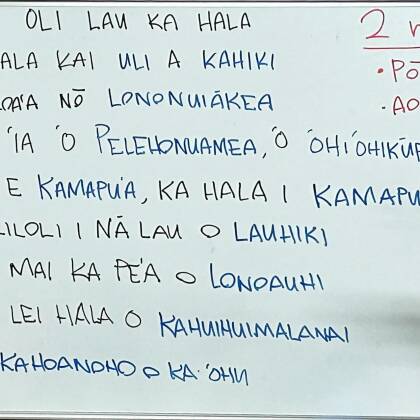 OLI LAU KA HALA
ALA KAI ULI A KAHIKI
LOAʻA NŌ LONONUIĀKEA
ʻIA ʻO PELEHONUAMEA, ʻO ʻŌHIʻOHIKŪP
E KAMAPUʻA, KA HALA I KAMAPU
LILOLI I NĀ LAU O LAUHIKI
MAI KA PEʻA O LONOAUHI
LEI HALA O KAHUIHUIMALANAI
KAHOANOHO O KA ʻOHU
2
• PŌ
• AO